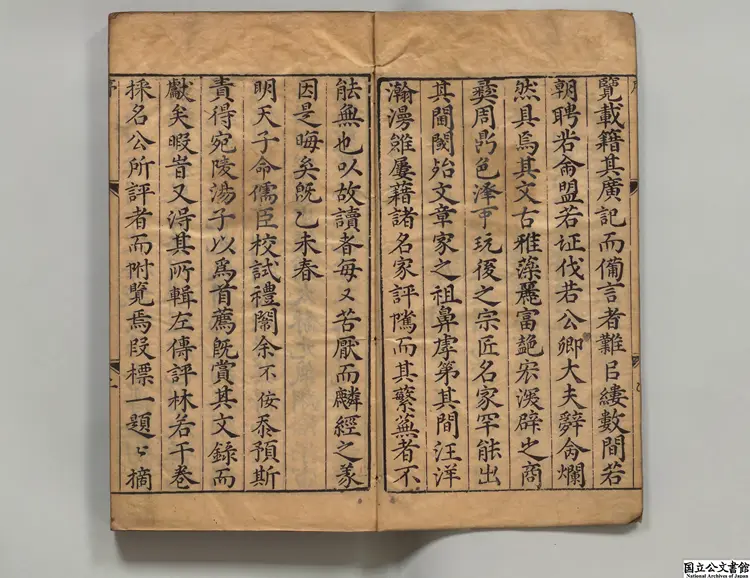 覽載籍其廣記而備言者難㠯縷數間若
朝聘若會盟若征伐若公卿大夫辭命爛
然具焉其文古雅藻麗富豔宏深辟之商
彝周鼎色澤可玩後之宗匠名家罕能出
其閫閾殆文章家之祖鼻虖第其間汪洋
瀚漫雖屢籍諸名家評隲而其蘩蕪者不
能無也以故讀者每又苦厭而麟經之義
因是晦矣旣乙未春
明天子命儒臣校試禮闈余不佞忝預斯
責得宛陵湯子以爲首薦旣賞其文錄而
獻矣暇旹又得其所輯左傳評林若干卷
採名公所評者而附覽焉段標一題〻摘
国立公文書館
National Archives of Japan